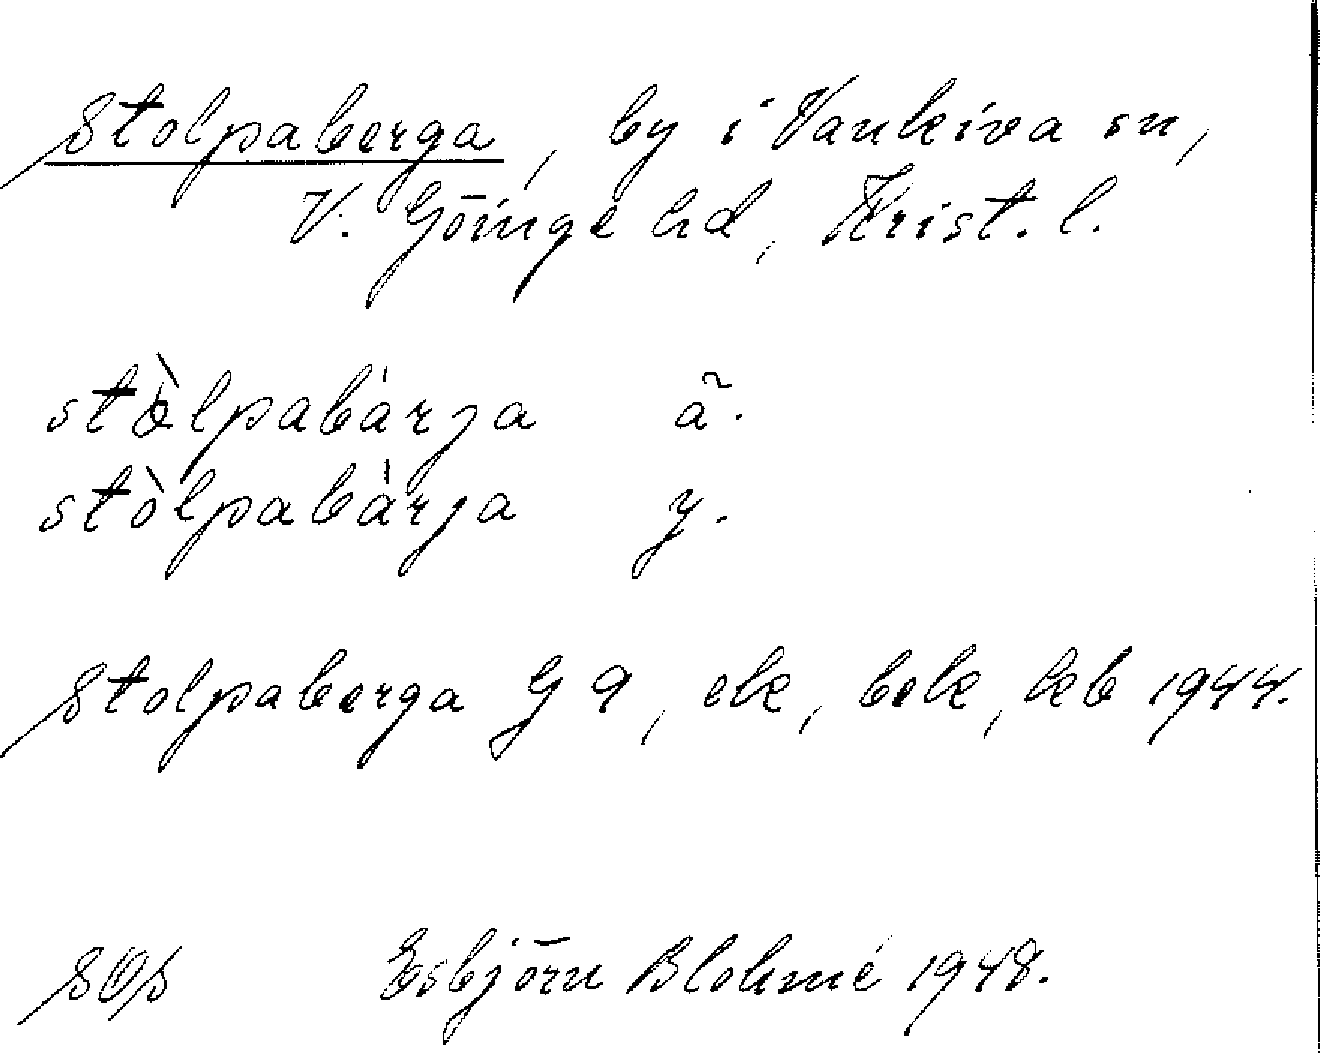 Stolpaberga, by i Vankiva sn,
V. Göinge hd, Krist. l.
stòlpabárja ä.
stòlpabàrja y.
Stolpaberga G 9, ek, bek, kb 1944.
SOS Esbjörn Blohmé 1948.